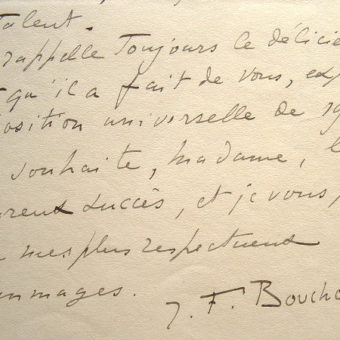 Talent.
rappelle Toujours le délicie
qu'il a fait de vous, exp
osition universelle de 19
souhaite, madame, l
ureux succès, et je vous,
mes plus respectueux
ommages.
J. F. Boucho